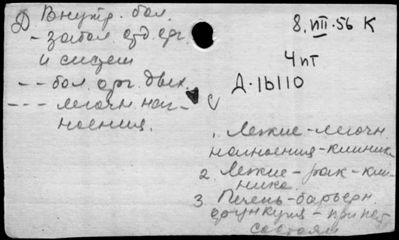 Д Внутр. бол.
- забол. отд. орг.
и систем
-- бол. орг. дых.
--- легочн. наг-
ноения.
8.VIII.56 К
4 пт
Д-16110
1. Легкие - легочн.
нагноения - клиника
2. Легкие - рак - кли-
ника
3. Печень - барьерн.
функция - при
состоян